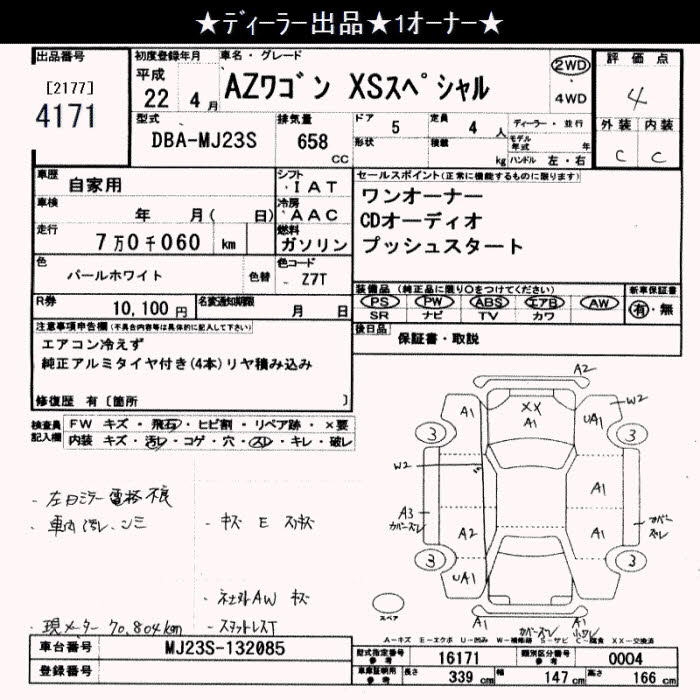 ★ディーラー出品★1オーナー★
出品番号
[2177]
4171
初度登録年月
平成
22 4月
車名・グレード
AZワゴン XSスペシャル
2WD
・
4WD
評価点
4
外装 内装
C C
型式
DBA-MJ23S
排気量
658
CC
ドア 5
形状
定員 4 人
積載 kg
ディーラー・並行
モデル年式 年
ハンドル 左・右
車歴 自家用
車検 年 月( 日)
走行 7万0千060 km
シフト
・IAT
冷房
・AAC
燃料
ガソリン
セールスポイント(正常に機能するものに限ります)
ワンオーナー
CDオーディオ
プッシュスタート
色 パールホワイト 色替
色コード
Z7T
装備品(純正品に限り〇をつけてください)
PS PW ABS エアB AW
SR ナビ TV カワ
新車保証書
有・無
R券 10,100円
名変通知期限 月 日
後日品 保証書・取説
注意事項申告欄(不具合内容等は具体的に記入して下さい)
エアコン冷えず
純正アルミタイヤ付き(4本)リヤ積み込み
修復歴 有[箇所 ]
検査員記入欄
FW キズ・飛石・ヒビ割・リペア跡・×要
内装 キズ・汚レ・コゲ・穴・スレ・キレ・破レ
・左ドミラー電格不良
・車内汚レ、シミ
・キズ E スリキズ
・社外AW キズ
・現メーター 70,804km
・スタットレスT
A2
A1
XX
A1
UA1
W2
3
3
W2
A1
A3
カバーズレ
A2
A1
カバー
ズレ
3
3
UA1
A1
A1
カバーズレ
スペア
A-キズ E-エクボ U-凹み W-補修跡 S-サビ C-腐食 XX-交換済
車台番号 MJ23S-132085
登録番号
型式指定番号
参考
16171
類別区分番号
参考
0004
車庫証明用
参考
長さ 339 cm
幅 147 cm
高さ 166 cm